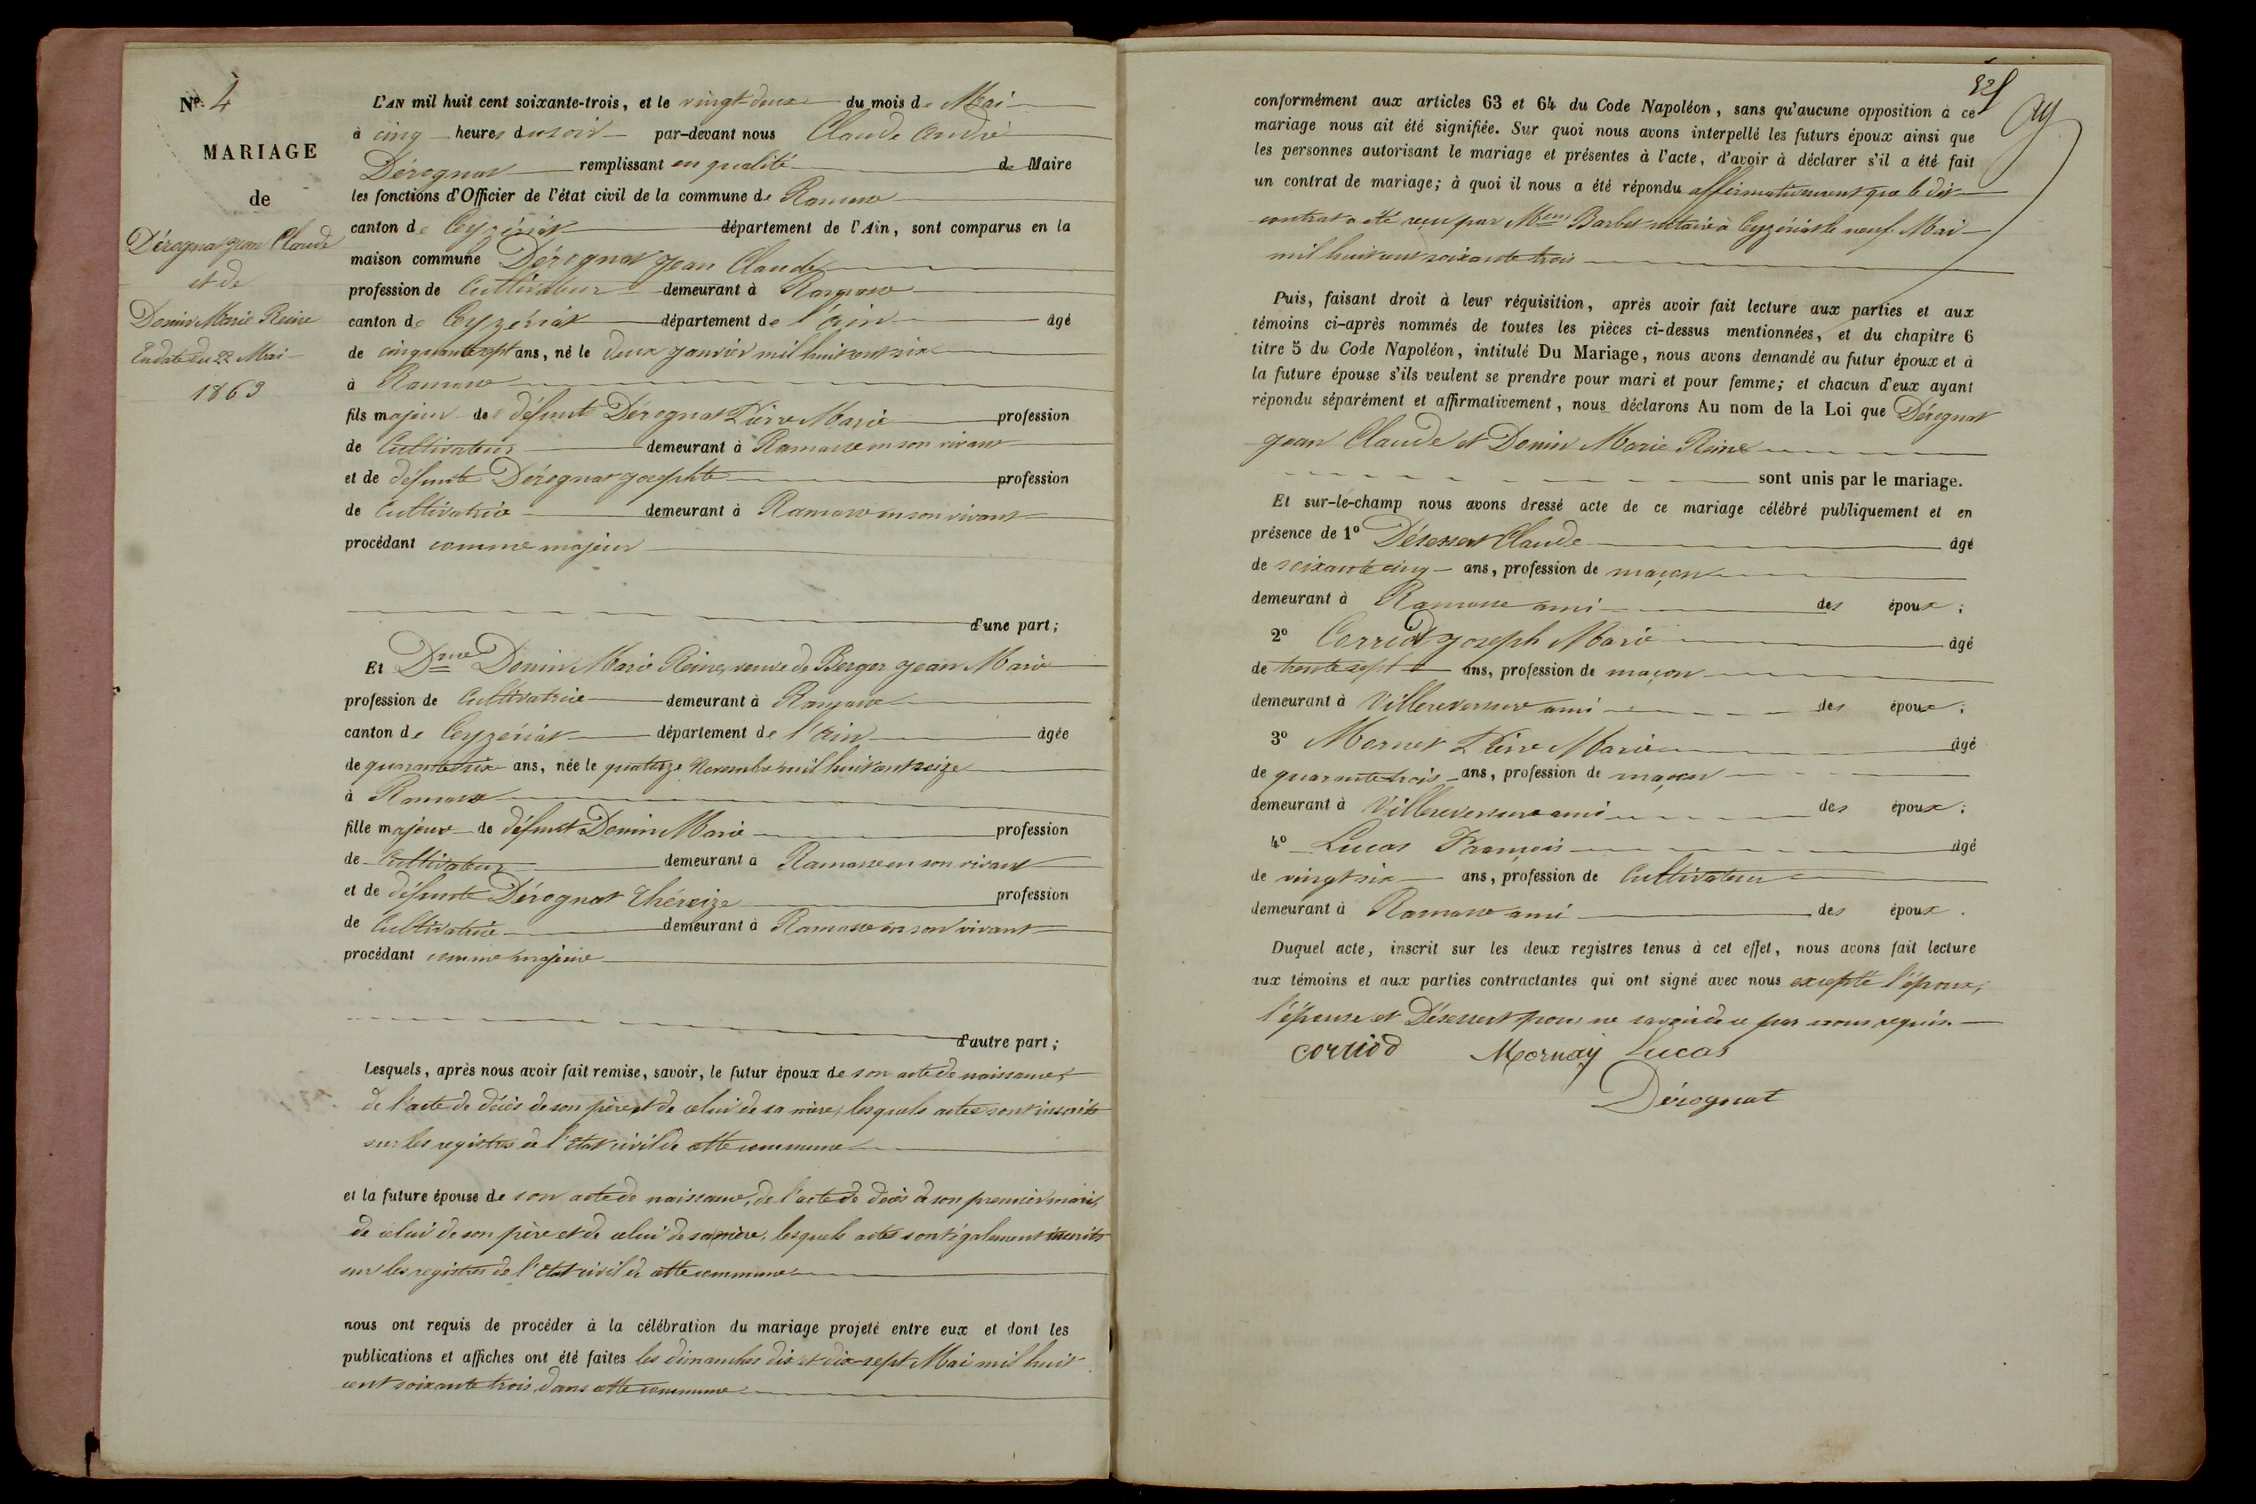 No. 4
MARIAGE
de
Dérognat Jean Claude
et de
Donin Marie Reine
En date du 22 Mai
1863
L'AN mil huit cent soixante-trois, et le vingt-deux du mois de Mai
à cinq heures du soir par-devant nous Claude André
Dérognat remplissant en qualité de Maire
les fonctions d'Officier de l'état civil de la commune de Ramasse
canton de Ceyzériat département de l'Ain, sont comparus en la
maison commune Dérognat Jean Claude
profession de Cultivateur demeurant à Ramasse
canton de Ceyzériat département de l'Ain âgé
de cinquante sept ans, né le deux Janvier mil huit cent six
à Ramasse
fils majeur de défunt Dérognat Pierre Marie profession
de Cultivateur demeurant à Ramasse en son vivant
et de défunte Dérognat Josephte profession
de Cultivatrice demeurant à Ramasse en son vivant
procédant comme majeur
d'une part;
Et Dme Donin Marie Reine, veuve de Berger Jean Marie
profession de Cultivatrice demeurant à Ramasse
canton de Ceyzériat département de l'Ain âgée
de quarante six ans, née le quatorze Novembre mil huit cent seize
à Ramasse
fille majeure de défunt Donin Marie profession
de Cultivateur demeurant à Ramasse en son vivant
et de défunte Dérognat Théreize profession
de Cultivatrice demeurant à Ramasse en son vivant
procédant comme majeure
d'autre part;
Lesquels, après nous avoir fait remise, savoir, le futur époux de son acte de naissance,
de l'acte de décès de son père et de celui de sa mère, lesquels actes sont inscrits
sur les registres de l'Etat civil de cette commune
et la future épouse de son acte de naissance, de l'acte de décès de son premier mari,
de celui de son père et de celui de sa mère, lesquels actes sont également inscrits
sur les registres de l'Etat civil de cette commune
nous ont requis de procéder à la célébration du mariage projeté entre eux et dont les
publications et affiches ont été faites les dimanches dix et dix-sept Mai mil huit
cent soixante trois, dans cette commune
conformément aux articles 63 et 64 du Code Napoléon, sans qu'aucune opposition à ce
mariage nous ait été signifiée. Sur quoi nous avons interpellé les futurs époux ainsi que
les personnes autorisant le mariage et présentes à l'acte, d'avoir à déclarer s'il a été fait
un contrat de mariage; à quoi il nous a été répondu affirmativement que le dit
contrat a été reçu par Barbet notaire à Ceyzériat le neuf Mai
mil huit cent soixante trois
Puis, faisant droit à leur réquisition, après avoir fait lecture aux parties et aux
témoins ci-après nommés de toutes les pièces ci-dessus mentionnées, et du chapitre 6
titre 5 du Code Napoléon, intitulé Du Mariage, nous avons demandé au futur époux et à
la future épouse s'ils veulent se prendre pour mari et pour femme; et chacun d'eux ayant
répondu séparément et affirmativement, nous déclarons Au nom de la Loi que Dérognat
Jean Claude et Donin Marie Reine
sont unis par le mariage.
Et sur-le-champ nous avons dressé acte de ce mariage célébré publiquement et en
présence de 1o Désessert Claude âgé
de soixante cinq ans, profession de maçon
demeurant à Ramasse ami des époux;
2o Corriod Joseph Marie âgé
de trente sept ans, profession de maçon
demeurant à Villereversure ami des époux;
3o Mornet Pierre Marie âgé
de quarante trois ans, profession de maçon
demeurant à Villereversure ami des époux;
4o Lucas François âgé
de vingt six ans, profession de Cultivateur
demeurant à Ramasse ami des époux.
Duquel acte, inscrit sur les deux registres tenus à cet effet, nous avons fait lecture
aux témoins et aux parties contractantes qui ont signé avec nous excepté l'époux,
l'épouse et Désessert pour ne savoir de ce par nous requis.
corriod Mornay Lucas
Dérognat